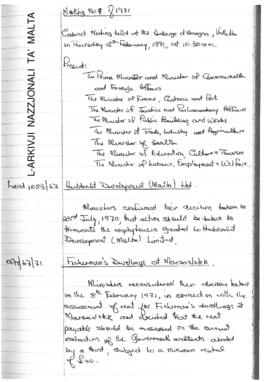 L-ARKIVJI NAZZJONALI TA' MALTA
Meeting No 7 of 1971
Cabinet Meeting held at the Auberge d'Aragon, Valletta
on Thursday 18th February, 1971, at 10.30 a.m.
Present:
The Prime Minister and Minister of Commonwealth
and Foreign Affairs
The Minister of Finance, Customs and Port
The Minister of Justice and Parliamentary Affairs
The Minister of Public Building and Works
The Minister of Trade, Industry and Agriculture
The Minister of Health
The Minister of Education, Culture & Tourism
The Minister of Labour, Employment & Welfare.
Land 1053/63 Hubbald Development (Malta) Ltd.
Ministers confirmed their decision taken on
July, 1970, that action should be taken to
terminate the emphyteusis granted to Hubbald
Development (Malta) Limited.
Fishermen's Dwellings at Marsaxlokk.
Ministers reconsidered their decision taken
on the 8th February 1971, in connection with the
assessment of rent for Fishermen's dwellings at
Marsaxlokk and decided that the rent
payable should be assessed on the current
valuation of the Government architects abated
by a third, subject to a minimum rental
of £40.